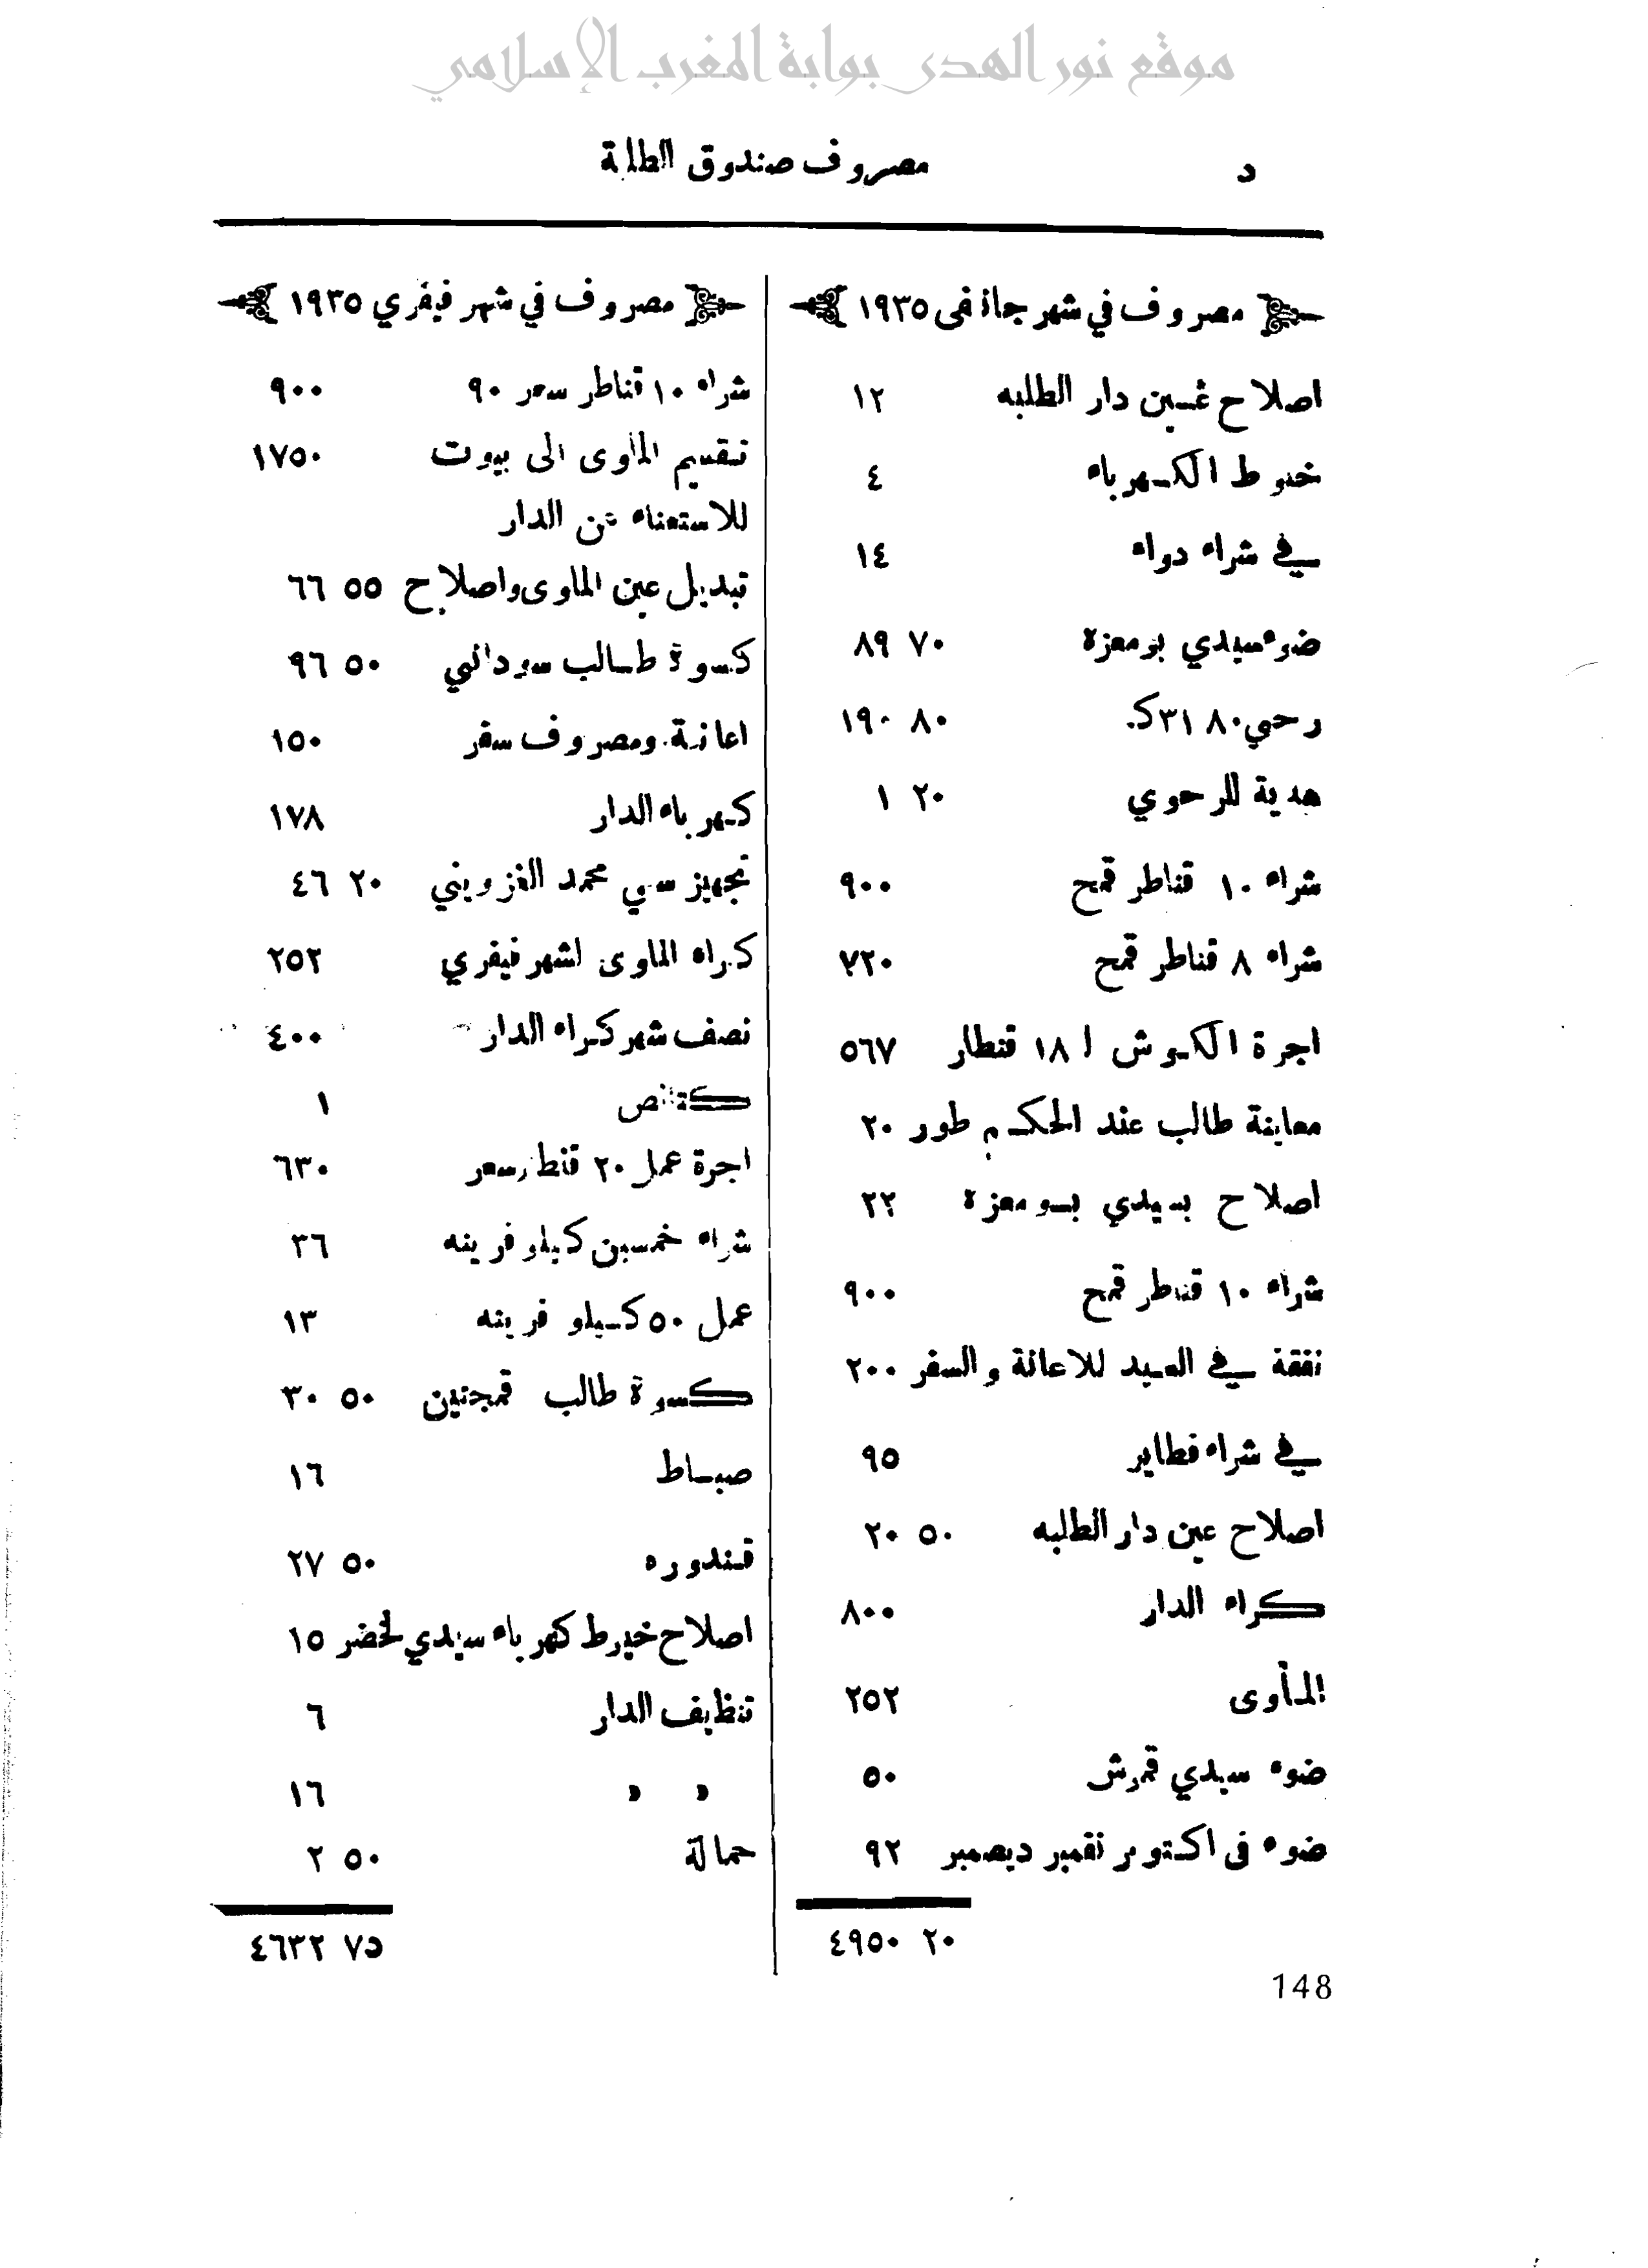 موقع نور الهدى بوابة المغرب الإسلامي
د
مصروف صندوق الطلبة
مصروف في شهر جانفى ١٩٣٥
اصلاح عين دار الطلبه ١٢
خيوط الكهرباء ٤
في شراء دواء ١٤
ضوء سيدي بومعزة ٧٠ ٨٩
رحي ٨٠ ٣١ ك. ٨٠ ١٩٠
هدية للرحوي ٢٠ ١
شراء ١٠ قناطر قمح ٩٠٠
شراء ٨ قناطر قمح ٧٢٠
اجرة الكوش ل ١٨ قنطار ٥٦٧
معاينة طالب عند الحكيم طور ٢٠
اصلاح بسيدي بومعزة ٢٢
شراء ١٠ قناطر قمح ٩٠٠
نفقة في العيد للاعانة والسفر ٢٠٠
في شراء فطاير ٩٥
اصلاح عين دار الطلبه ٥٠ ٢٠
كراء الدار ٨٠٠
المأوى ٢٥٢
ضوء سيدي قموش ٥٠
ضوء فى اكتوبر نفمبر ديصمبر ٩٢
٢٠ ٤٩٥٠
مصروف في شهر فيفري ١٩٣٥
شراء ١٠ قناطر سعر ٩٠ ٩٠٠
تقسيم المأوى الى بيوت ١٧٥٠
للاستغناء عن الدار
تبديل عين الماوى واصلاح ٥٥ ٦٦
كسوة طالب سوداني ٥٠ ٩٦
اعانة ومصروف سفر ١٥٠
كهرباء الدار ١٧٨
تجهيز سي محمد الغزويني ٢٠ ٤٦
كراء الماوى لشهر فيفري ٢٥٢
نصف شهر كراء الدار ٤٠٠
١
اجرة عمل ٢٠ قنطار سعر ٦٣٠
شراء خمسين كيلو فرينه ٣٦
عمل ٥٠ كيلو فرينه ١٣
كسوة طالب قمجتين ٥٠ ٣٠
صباط ١٦
قندوره ٥٠ ٢٧
اصلاح خيوط كهرباء سيدي لخضر ١٥
تنظيف الدار ٦
» » ١٦
حمالة ٥٠ ٢
٧٥ ٤٦٣٢
148